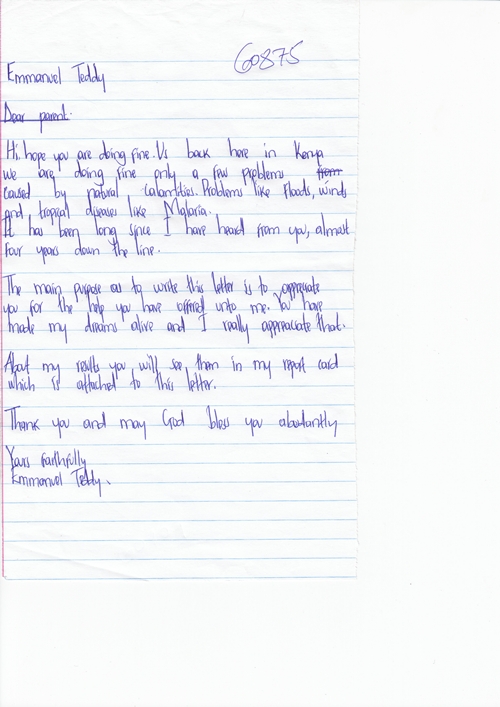 60875
Emmanuel Teddy
Dear parent.
Hi. hope you are doing fine. Us back here in Kenya
we are doing fine only a few problems from
caused by natural calamities. Problems like floods, winds
and tropical diseases like Malaria.
It has been long since I have heard from you, almost
four years down the line.
The main purpose as to write this letter is to appreciate
you for the help you have offered unto me. You have
made my dreams alive and I really appreaciate that.
About my results you will see them in my report card
which is attached to this letter.
Thank you and may God bless you abudantly
Yours faithfully
Emmanuel Teddy.